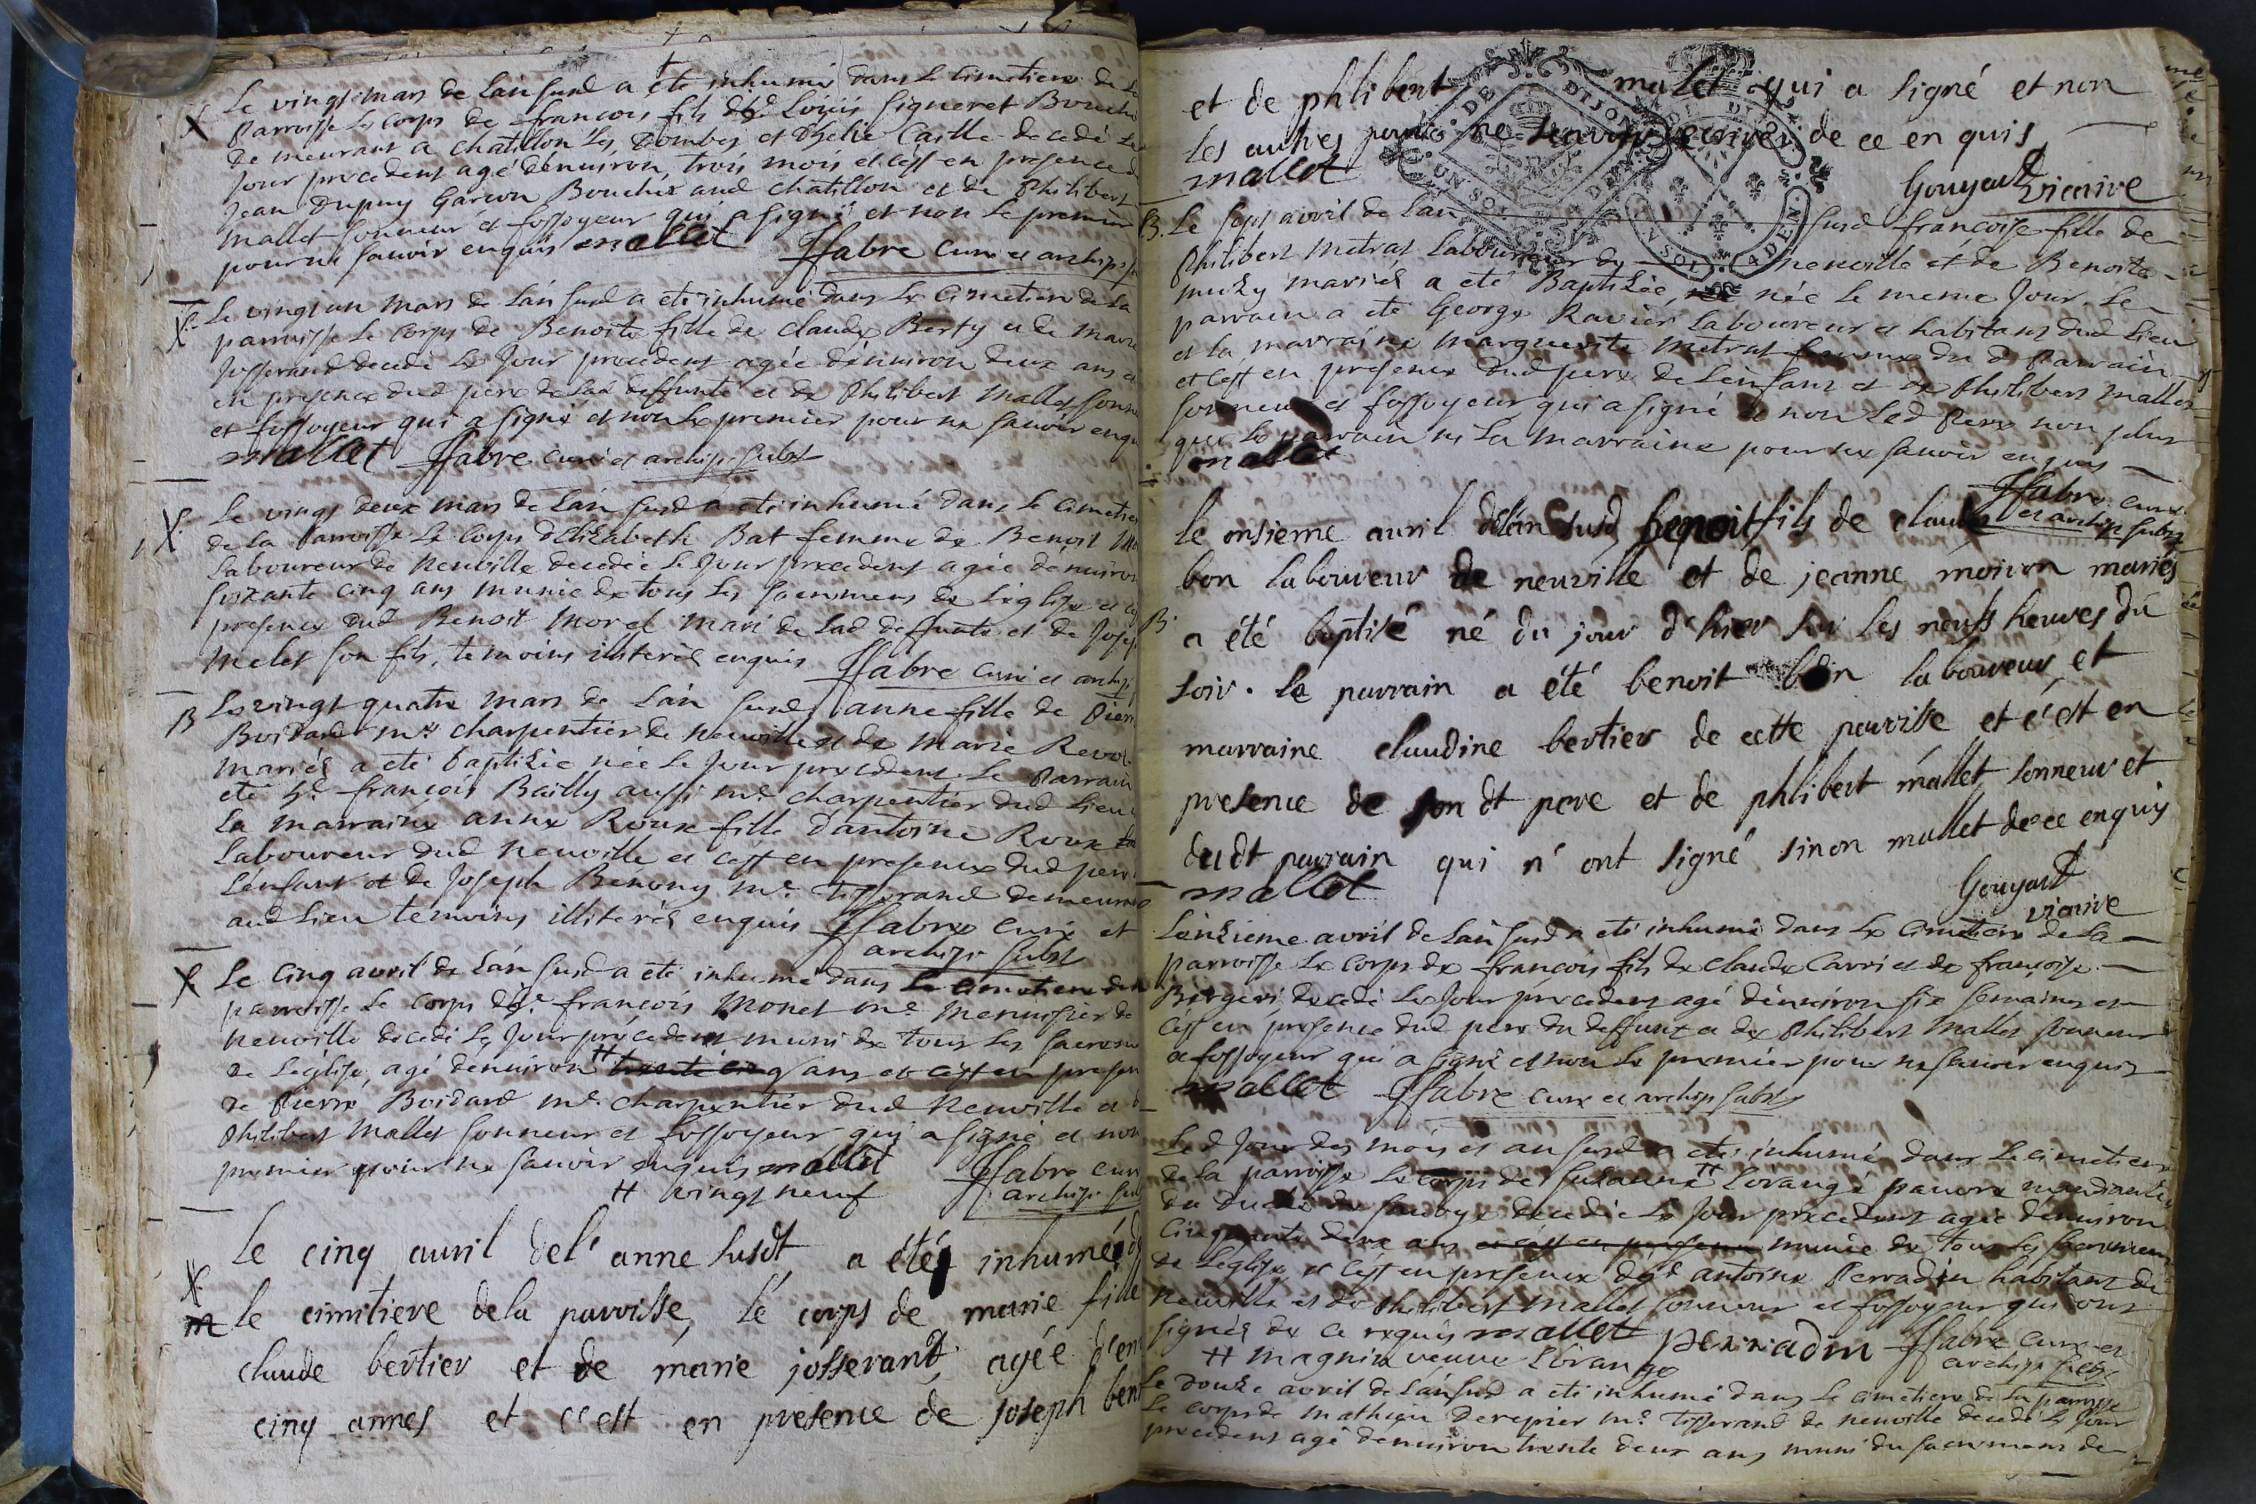 X Le vingt mars de l'an susd a eté inhumé dans le cimetiere de la
parroisse le corps de francois fils de Sr Louis figneret Boucher
demeurant a chatillon les Dombes et d'helie Caille decedé le
jour precedent agé d'environ trois mois et c'est en presence de
Jean Dupuy Garcon Boucher aud chatillon et de Philibert
Mallet sonneur et fossoyeur qui a signé et non le premier
pour ne savoir enquis mallet ffabre curé et archip.
X Le vingt un mars de l'an susd a eté inhumé dans le cimetiere de la
parroisse le corps de Benoite fille de claude Berty et de marie
Josserand decedé le jour precedent agée d'environ deux ans et
en presence dud pere de lad deffunte et de Philibert Mallet sonn
et fossoyeur qui a signé et non le premier pour ne savoir enqu
mallet ffabre curé et archip. subst
X Le vingt deux mars de l'an susd a eté inhumé dans le cimetiere
de la parroisse le corps d'Elizabeth Bat femme de Benoit
Laboureur de neuville decedée le jour precedent agée d'environ
soixante cinq ans munie de tous les sacremens de l'eglise et c'est
presence dud Benoit Morel mari de lad deffunte et de Josep
son fils, temoins illiterés enquis ffabre curé et archip
B Le vingt quatre mars de l'an susd anne fille de Pierre
Boidard me charpentier de neuville et de marie Revol
mariés a eté baptizée née le jour precedent. Le Parrain
eté Sr françois Bailly aussi me charpentier dud lieu
La marraine anne Roux fille d'antoine Roux
Laboureur dud neuville et c'est en presence dud pere
L'enfant et de Joseph Benony me Tisserand demeurant
aud lieu temoins illiterés enquis ffabre curé et
archip. subst
X Le cinq avril de l'an susd a eté inhumé dans le cimetiere de la
parroisse le corps de Sr françois Monet me menuisier de
neuville decedé le jour precedent muni de tous les sacremen
de l'eglise, agé d'environ # trente cinq ans et c'est en presen
de Pierre Boidard me charpentier dud neuville et
Philibert Mallet sonneur et fossoyeur qui a signé et non
premier pour ne savoir enquis mallet ffabre curé
# vingt neuf archip. sub
le cinq avril de l'anne susdt a été inhumé d
m le cimitiere de la paroisse, le corps de marie fille
claude bertier et de marie josserand, agée d'en
cinq annes et c'est en presence de joseph ber
et de phlibert malet qui a signé et non
les autres pour ne scavoir ecrire de ce en quis
mallet Gouyard vicaire
B. Le sept avril de l'an susd françoise fille de
Philibert Metrat Laboureur de neuville et de Benoite
mariés a eté Baptizée, née le meme jour. Le
parrain a eté George Ravier Laboureur et habitant dud lieu
et la marraine marguerite metrat femme du d Parrain
et c'est en presence dud pere de l'enfant et de Philibert Mallet
sonneur et fossoyeur qui a signé et non led pere non plus
que le parrain ni la marraine pour ne savoir enquis
mallet ffabre curé
et archip subst
le onsieme avril de l'an susd benoit fils de claude
bon laboureur de neuville et de jeanne moiron mariés
B. a été baptisé né du jour d'hier sur les neufs heures du
soir. le parrain a été benoit bon laboureur, et
marraine claudine bertier de cette paroisse et c'est en
presence de son dt pere et de phlibert mallet sonneur et
dudt parrain qui n'ont signé sinon mallet de ce enquis
mallet Gouyard
vicaire
L'onzieme avril de l'an susd a eté inhumé dans le cimetiere de la
parroisse le corps de françois fils de claude Carri et de françoise
decedé le jour precedent agé d'environ six semaines et
c'est en presence dud pere du deffunt et de Philibert Mallet sonneur
et fossoyeur qui a signé et non le premier pour ne savoir enquis
mallet ffabre curé et archip subst
Led jour des mois et an susd a eté inhumé dans le cimetiere
de la parroisse le corps de Susanne # Lorange pauvre mendiante
du Duché de Savoye decedée le jour precedent agée d'environ
cinquante deux ans et c'est en presence munie de tous les sacremens
de l'eglise, et c'est en presence de Sr antoine Perradin habitant de
neuville et de Philibert Mallet sonneur et fossoyeur qui ont
signés de ce requis mallet perradin ffabre curé et
# Magnin veuve Lorange archip subst
Le douze avril de l'an susd a eté inhumé dans le cimetiere de la parroisse
le corps de mathieu Derepier me Tisserand de neuville decedé le jour
precedent agé d'environ trente deux ans muni du sacrement de